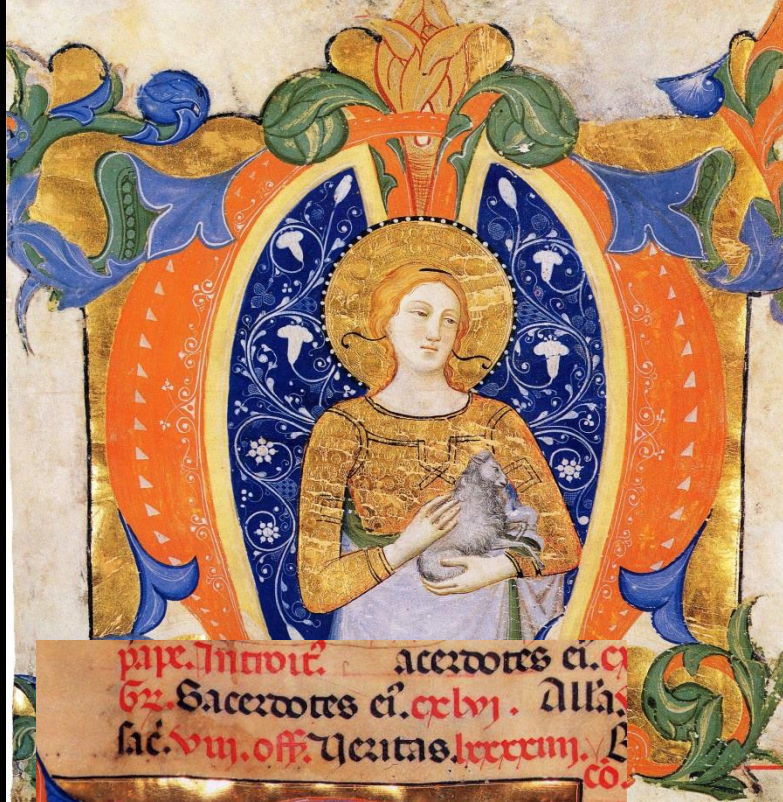 pape. Introit̃. acerdotes ei. cx
Gr̃. Sacerdotes ei᷒. cxlvj. All'a.
sac̃. viii. off. Veritas. lxxxxiiii.
co.